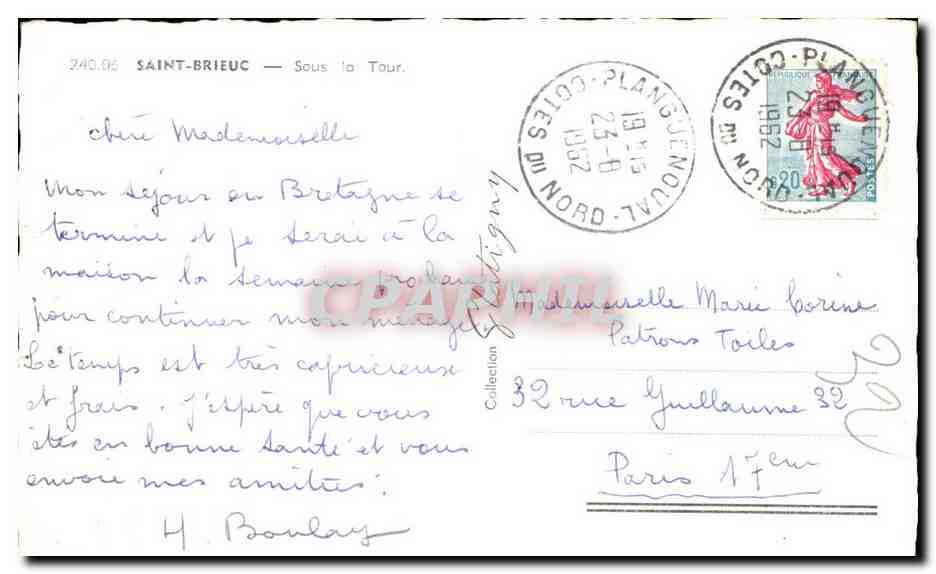 240.06 SAINT-BRIEUC — Sous la Tour.
chère Mademoiselle
Mon séjour en Bretagne se
termine et je serai à la
maison la semaine
pour continuer mon ménage.
Le temps est très capricieuse
et frais. j'espère que vous
êtes en bonne santé et vous
envoie mes amitiés.
H. Boulay
Collection Glatigny
PLANGUENOUAL
19 H 15
23-8
1962
COTES DU NORD
PLANGUENOUAL
19 H 15
23-8
1962
COTES DU NORD
REPUBLIQUE FRANÇAISE
0,20
POSTES
Mademoiselle Marie Corine
Patrons Toiles
32 rue Guillaume 32
Paris 17em
CPARAMA